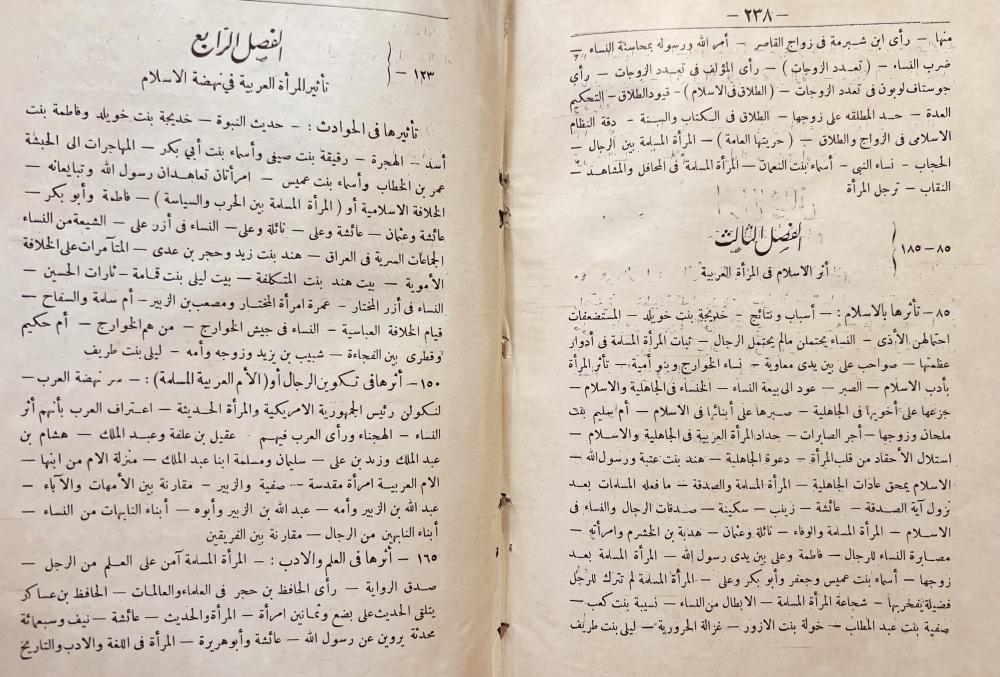 — ٢٣٨ —
منها — رأى ابن شبرمة فى زواج القاصر — أمر الله ورسوله بمحاسنة النساء —
ضرب النساء — ( تعدد الزوجات ) — رأى المؤلف فى تعدد الزوجات — رأى
جوستاف لوبون فى تعدد الزوجات — ( الطلاق فى الاسلام ) — قيود الطلاق — التحكيم
العدة — حد المطلقه على زوجها — الطلاق فى الكتاب والسنة — دقة النظام
الاسلامى فى الزواج والطلاق — ( حريتها العامة ) — المرأة المسلمة بين الرجال —
الحجاب — نساء النبى — أسماء بنت النعمان — المرأة المسلمة فى المحافل والمشاهد —
النقاب — ترجل المرأة
الفصل الثالث
٨٥ — ١٨٥
أثر الاسلام فى المرأة العربية
٨٥ — تأثرها بالاسلام : — أسباب ونتائج — خديجة بنت خويلد — المستضعفات
احتمالهن الأذى — النساء يحتملن مالم يحتمل الرجال — ثبات المرأة المسلمة فى أدوار
عظمتها — صواحب على بين يدى معاوية — نساء الخوارج وبنو أمية — تأثر المرأة
بأدب الاسلام — الصبر — عود الى بيعة النساء — الخنساء فى الجاهلية والاسلام —
جزعها على أخويها فى الجاهلية — صبرها على أبنائها فى الاسلام — أم سليم بنت
ملحان وزوجها — أجر الصابرات — حداد المرأة العربية فى الجاهلية والاسلام —
استلال الأحقاد من قلب المرأة — دعوة الجاهلية — هند بنت عتبة ورسول الله —
الاسلام يمحق عادات الجاهلية — المرأة المسلمة والصدقة — ما فعله المسلمات بعد
نزول آية الصدقة — عائشة — زينب — سكينة — صدقات الرجال والنساء فى
الاسلام — المرأة المسلمة والوفاء — نائلة وعثمان — هدبة بن الخشرم وامرأته —
مصابرة النساء للرجال — فاطمة وعلى بين يدى رسول الله — المرأة المسلمة بعد
زوجها — أسماء بنت عميس وجعفر وأبو بكر وعلى — المرأة المسلمة لم تترك للرجل
فضيلة يفخر بها — شجاعة المرأة المسلمة — الابطال من النساء — نسيبة بنت كعب —
صفية بنت عبد المطلب — خولة بنت الازور — غزالة الحرورية — ليلى بنت طريف
الفصل الرابع
١٢٣ —
تأثير المرأة العربية فى نهضة الاسلام
تأثيرها فى الحوادث : — حديث النبوة — خديجة بنت خويلد وفاطمة بنت
أسد — الهجرة — رقيقة بنت صيفى وأسماء بنت أبي بكر — المهاجرات الى الحبشة
عمر بن الخطاب وأسماء بنت عميس — امرأتان تعاهدان رسول الله وتبايعانه —
الخلافة الاسلامية أو ( المرأة المسلمة بين الحرب والسياسة ) — فاطمة وأبو بكر —
عائشة وعثمان — عائشة وعلى — نائلة وعلى — النساء فى أزر على — الشيعة من النساء
الجماعات السرية فى العراق — هند بنت زيد وحجر بن عدى — المتآمرات على الخلافة
الأموية — بيت هند بنت المتكلفة — بيت ليلى بنت قمامة — ثارات الحسين —
النساء فى أزر المختار — عمرة امرأة المختار ومصعب بن الزبير — أم سلمة والسفاح —
قيام الخلافة العباسية — النساء فى جيش الخوارج — من هم الخوارج — أم حكيم
وقطرى بين الفجاءة — شبيب بن يزيد وزوجه وأمه — ليلى بنت طريف
١٥٠ — أثرها فى تكوين الرجال أو ( الأم العربية المسلمة ) : — سر نهضة العرب —
لنكولن رئيس الجمهورية الامريكية والمرأة الحديثة — اعتراف العرب بأنهم أثر
النساء — الهجناء ورأى العرب فيهم — عقيل بن علفة وعبد الملك — هشام بن
عبد الملك وزيد بن على — سليمان ومسلمة ابنا عبد الملك — منزلة الام من ابنها —
الام العربية امرأة مقدسة — صفية والزبير — مقارنة بين الأمهات والآباء —
عبد الله بن الزبير وأمه — عبد الله بن الزبير وأبوه — أبناء النابهات من النساء —
أبناء النابهين من الرجال — مقارنة بين الفريقين
١٦٥ — أثرها فى العلم والادب : — المرأة المسلمة آمن على العلم من الرجل —
صدق الرواية — رأى الحافظ بن حجر فى العلماء والعالمات — الحافظ بن عساكر
يتلقى الحديث على بضع وثمانين امرأة — المرأة والحديث — عائشة — نيف وسبعمائة
محدثة يروين عن رسول الله — عائشة وأبو هريرة — المرأة فى اللغة والادب والتاريخ